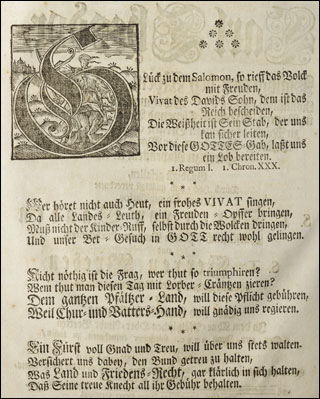 Glück zu dem Salomon, so rieff das Volck
mit Freuden,
Vivat des Davids Sohn, dem ist das
Reich bescheiden,
Die Weißheit ist Sein Stab, der uns
kan sicher leiten,
Vor diese GOTTES-Gab, laßt uns
ein Lob bereiten.
1. Regum I. 1. Chron. XXX.
* * *
Wer höret nicht auch Heut, ein frohes VIVAT singen,
Da alle Landes-Leuth, ein Freuden-Opffer bringen,
Muß nicht der Kinder-Ruff, selbst durch die Wolcken dringen,
Und unser Bet-Gesuch in GOTT recht wohl gelingen.
* * *
Nicht nöthig ist die Frag, wer thut so triumphiren?
Wem thut man diesen Tag mit Lorber-Cräntzen zieren?
Dem gantzen Pfältzer-Land, will diese Pflicht gebühren,
Weil Chur- und Vatters-Hand, will gnädig uns regieren.
* * *
Ein Fürst voll Gnad und Treu, will über uns stets walten.
Versichert uns dabey, den Bund getreu zu halten,
Was Land und Friedens-Recht, gar klärlich in sich halten,
Daß Seine treue Knecht all ihr Gebühr behalten.